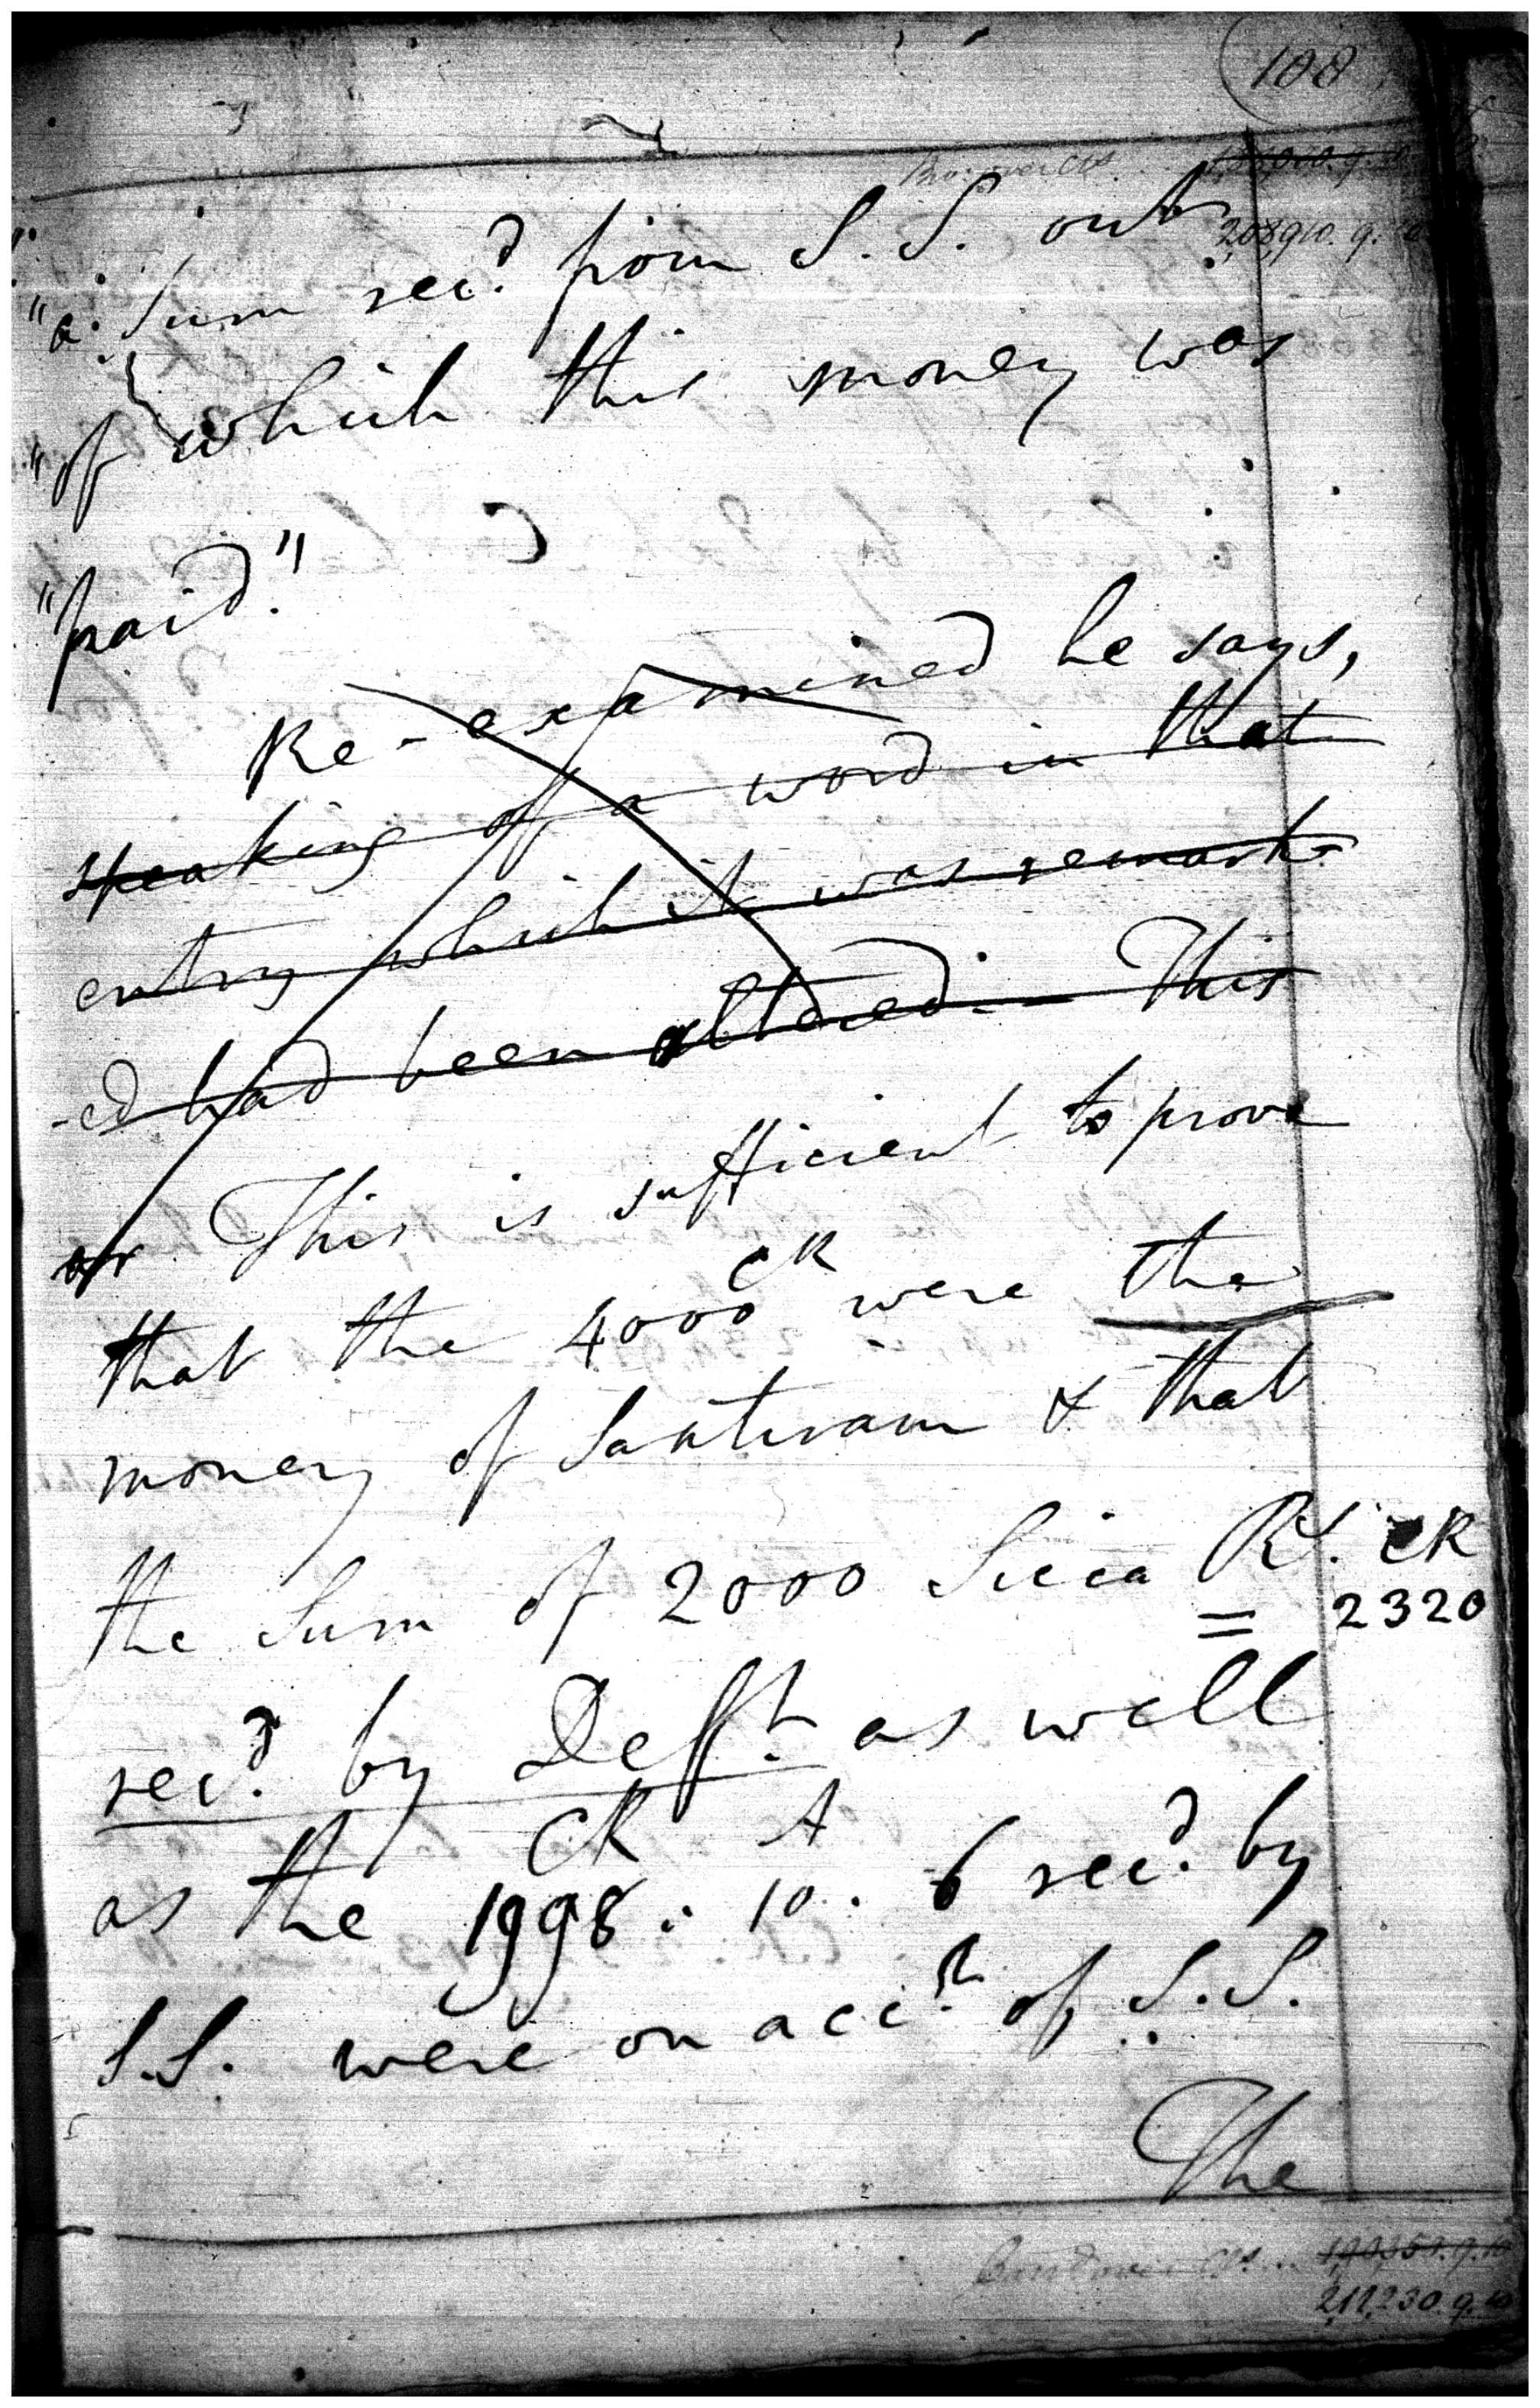 108
208,910. 9. 10
"a Sum rec.d from S. S. out
"of which this money was
"paid."
Re-examined he says,
speaking of a word in that
entry which it was remark
-ed had been altered. This
This is sufficient to prove
CR
that the 4000 were the
money of Santiram & that
the Sum of 2000 Sicca Rs. CR
= 2320
rec.d by Deft. as well
CR A
as the 1998 : 10 . 6 rec.d by
S.S. were on acc.t of S.S.
The
211,230. 9. 10